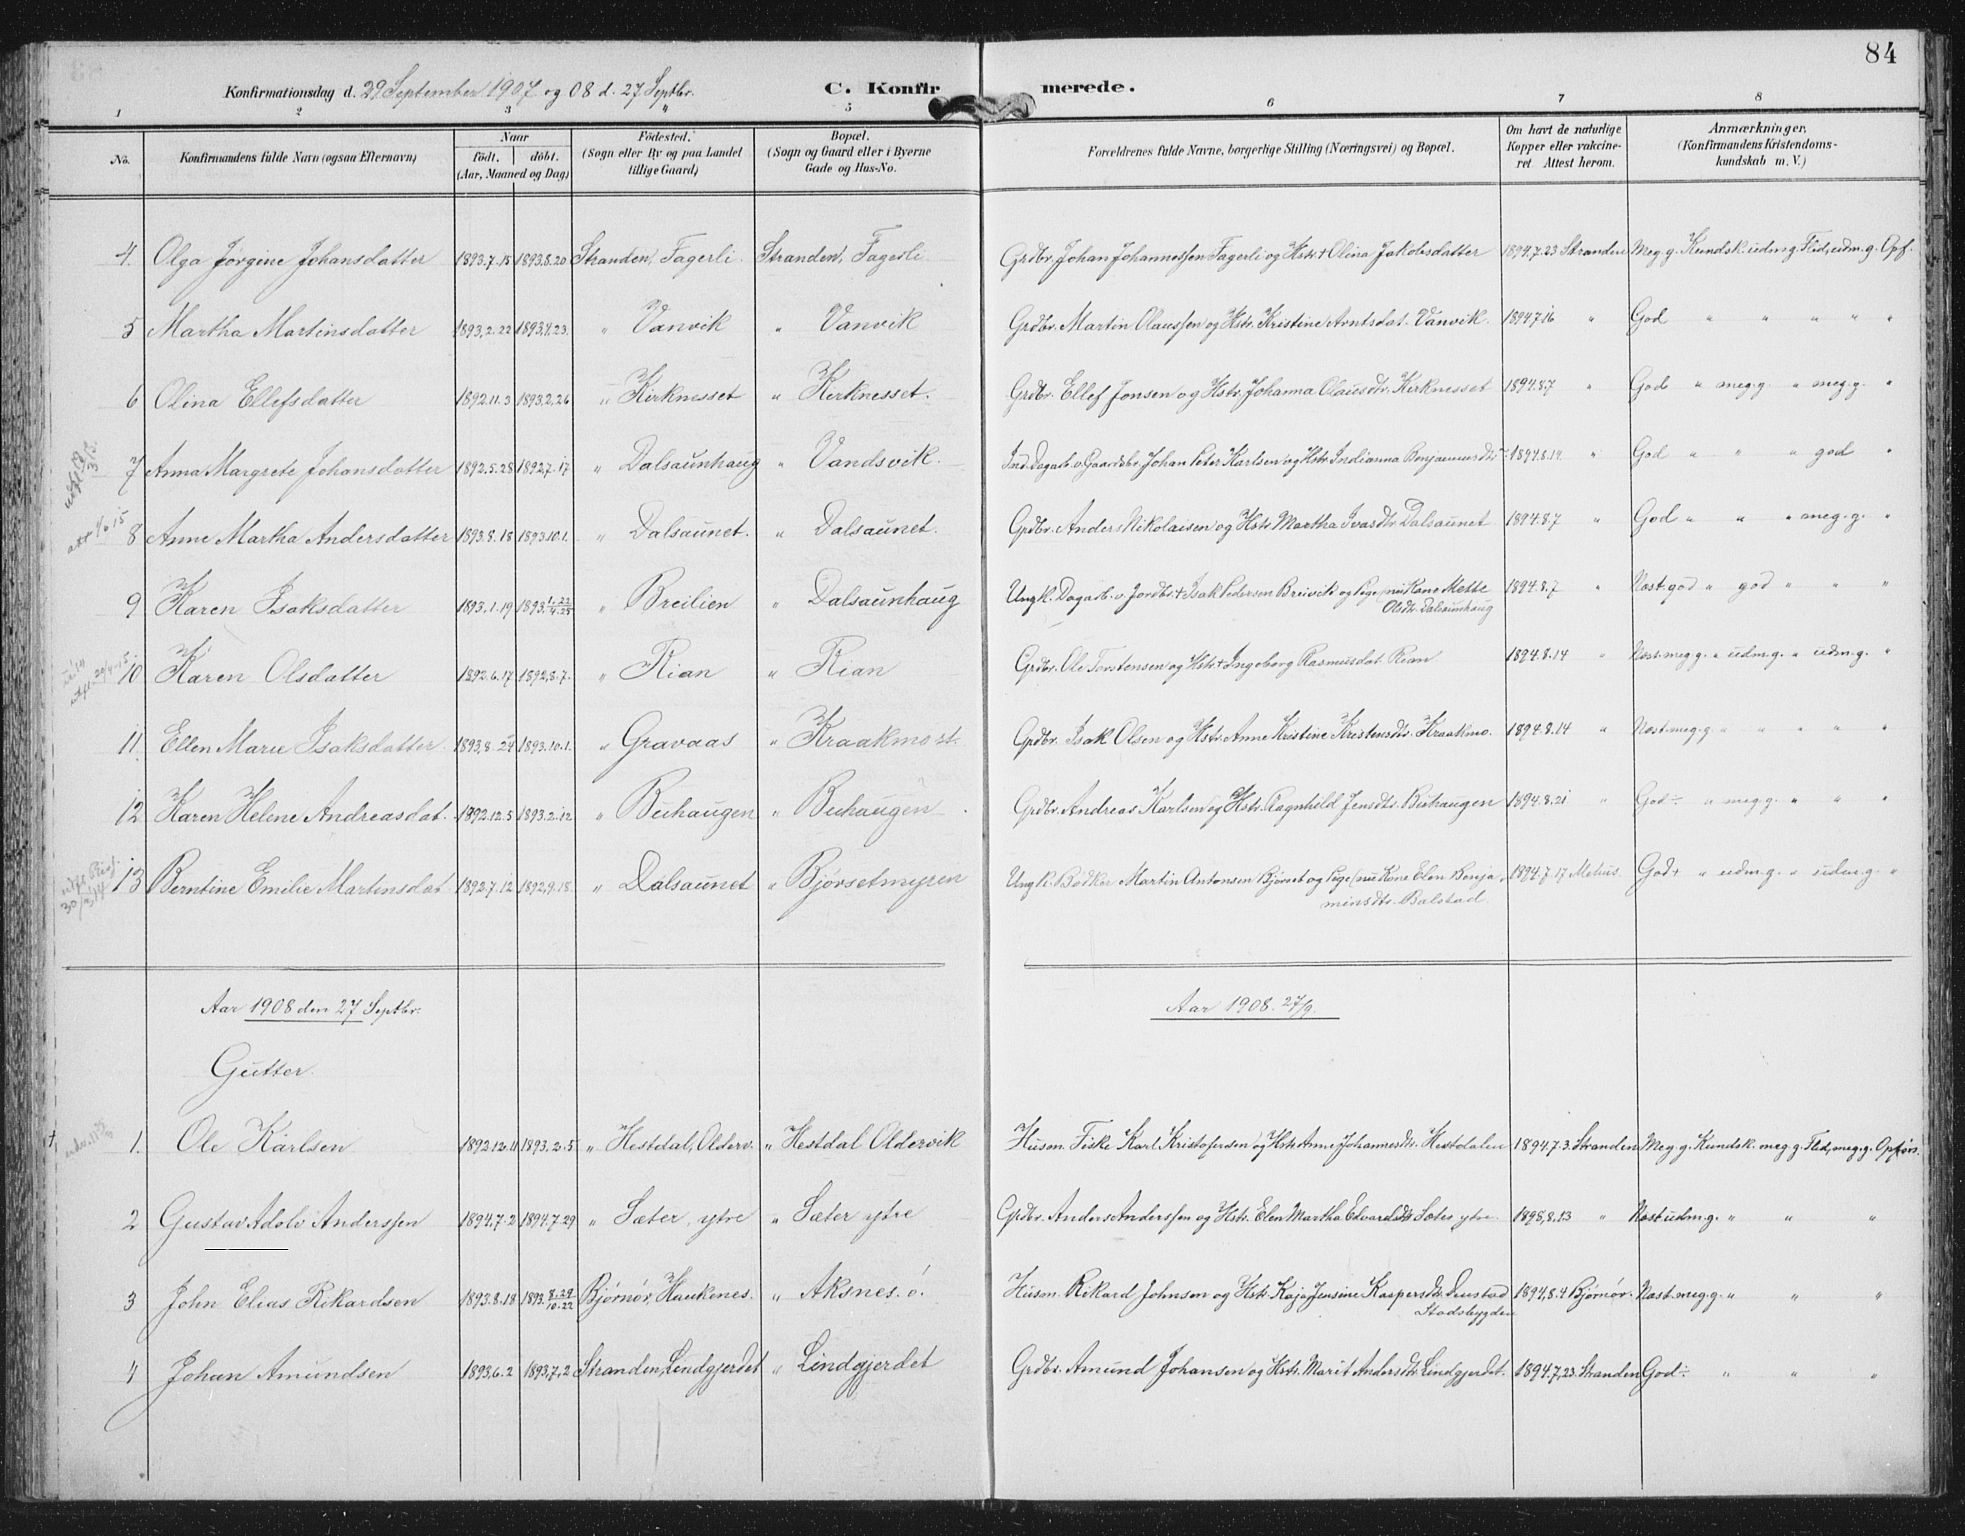 84
Konfirmationsdag d. 29 September 1907 og 08 d. 27 Septbr.
C. Konfirmerede.
1 2 3 4 5 6 7 8
No. Konfirmandens fulde Navn (ogsaa Efternavn) Naar födt. döbt. (Aar, Maaned og Dag) Födested. (Sogn eller By og paa Landet tillige Gaard) Bopæl. (Sogn og Gaard eller i Byerne Gade og Hus-No. Forældrenes fulde Navne, borgerlige Stilling (Næringsvei) og Bopæl. Om havt de naturlige Kopper eller vakcineret. Attest herom. Anmærkninger. (Konfirmandens Kristendomskundskab m. V.)
4. Olga Jørgine Johansdatter 1893.7.15 1893.8.20 Stranden, Fagerli Stranden, Fagerli Grdbr. Johan Johannessen Fagerli og Hstr + Olina Jakobsdatter 1894.7.23 Stranden Meg. g. Kundsk. udm. g. Flid, udm. g. Opf.
5 Martha Martinsdatter 1893.2.22 1893.4.23. " Vanvik " Vanvik Grdbr. Martin Olaussen og Hstr. Kristine Arntsdat. Vanvik. 1894.7.16 " God " " " " "
6 Olina Ellefsdatter 1892.11.3 1893.2.26 " Kirknesset " Kirknesset. Grdbr. Ellef Jonsen og Hstr. Johanna Olausdtr. Kirknesset 1894.8.7 " God " meg. g. " meg. g. "
7 Anna Margrete Johansdatter 1892.5.28 1892.7.17 " Dalsaunhaug " Vandsvik. Ind. Dagarb. v. Gaardsbr. Johan Peter Karlsen og Hstr. Indianna Benjaminsdtr 1894.8.14 " God " " " god "
8 Anne Martha Andersdatter 1893.8.18 1893.10.1. " Dalsaunet. " Dalsaunet. Grdbr. Anders Nikolaisen og Hstr. Martha Ivarsdtr. Dalsaunet 1894.8.7 " God " " " meg. g. "
9 Karen Isaksdatter 1893.1.19 1893. 1.22/4.23 " Breilien " Dalsaunhaug Ungk. Dagarb. v. Jordbr. + Isak Pedersen Breivik og Pige (nu Kone Mette 1894.8.7 " Næst. god " god " " "
Olsdtr. Dalsaunhaug
10 Karen Olsdatter 1892.6.17 1892.8.7. " Rian " Rian Grdbr. Ole Torstensen og Hstr + Ingeborg Rasmusdat. Rian 1894.8.14 " Næst. meg g. " udm. g. " udm. g. "
11. Ellen Marie Isaksdatter. 1893.8.24 1893.10.1. " Gravaas " Kraakmo st. Grdbr. Isak Olsen og Hstr. Anne Kristine Krestensdtr. Kraakmo. 1894.8.14 " Næst. meg. g. " " " " "
12 Karen Helene Andreasdat. 1892.12.5 1893.2.12 " Buhaugen " Buhaugen Grdbr. Andreas Karlsen og Hstr. Ragnhild Jensdtr. Buhaugen 1894.8.21 " God ÷ " meg. g. " " "
13 Berntine Emilie Martinsdat. 1892.7.12 1892.9.18. " Dalsaunet " Bjørsetmyren Ungk. Bødker Martin Antonsen Bjørset og Pige (nu Kone Elen Benja- 1894.7.17 Melius. God + " udm. g. " udm. g. "
minsdtr. Balstad.
Aar 1908 den 27 Septbr. Aar 1908. 27/9.
Gutter.
1. Ole Karlsen 1892.12.11 1893.2.5 " Hestdal, Olderv. " Hestdal Oldervik Husm. Fiske Karl Kristofersen og Hstr. Anne Johannesdtr. Hestdalen 1894.7.3. Stranden Meg. g. Kundsk. meg. g. Flid, meg. g. Opførs.
2 Gustav Adolv Anderssen 1894.7.2 1894.7.29 " Sæter, ytre " Sæter ytre Grdbr. Anders Anderssen og Hstr. Elen Martha Edvardsdtr Sæter ytre. 1898.8.13 " Næst udm. g. " " "
3 John Elias Rikardsen 1893.8.18 1893. 8.29/10.22 Bjørnør, Haukenes. " Aksnes. ö. Husm. Rikard Johnsen og Hstr. Kaja Jensine Kaspersdtr. Denstad 1894.8.4 Bjørnør. Næst. meg. g. " " "
Stadsbygden
4 Johan Amundsen 1893.6.2 1893.7.2 Stranden, Lindgjerdet " Lindgjerdet Grdbr. Amund Johansen og Hstr. Marit Andersdtr. Lindgjerdet. 1894.7.23. Stranden God ÷ " " "